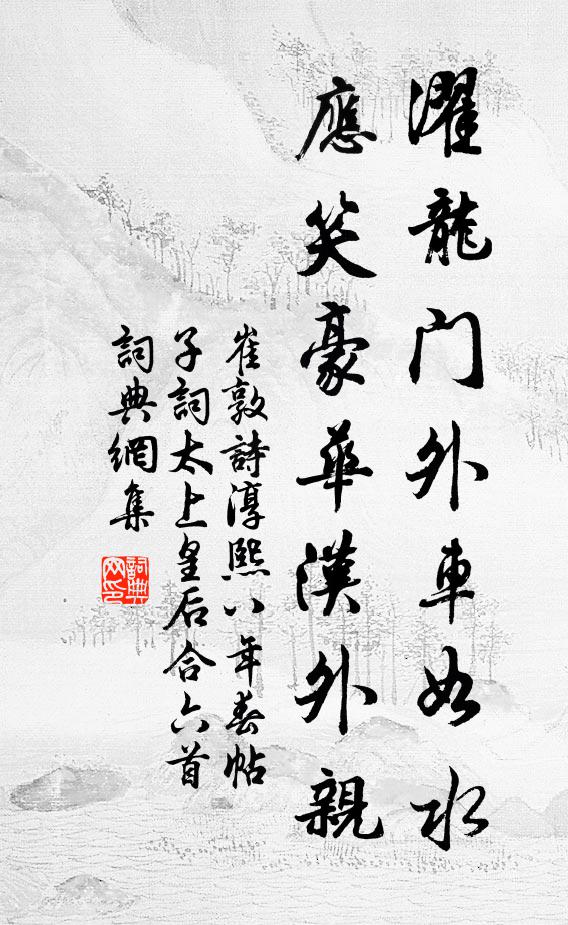 濯龍门外車如水
應笑豪華漢外親
崔敦詩淳熙八年春帖
子詞太上皇后合六首
詞典網集
詞典网印